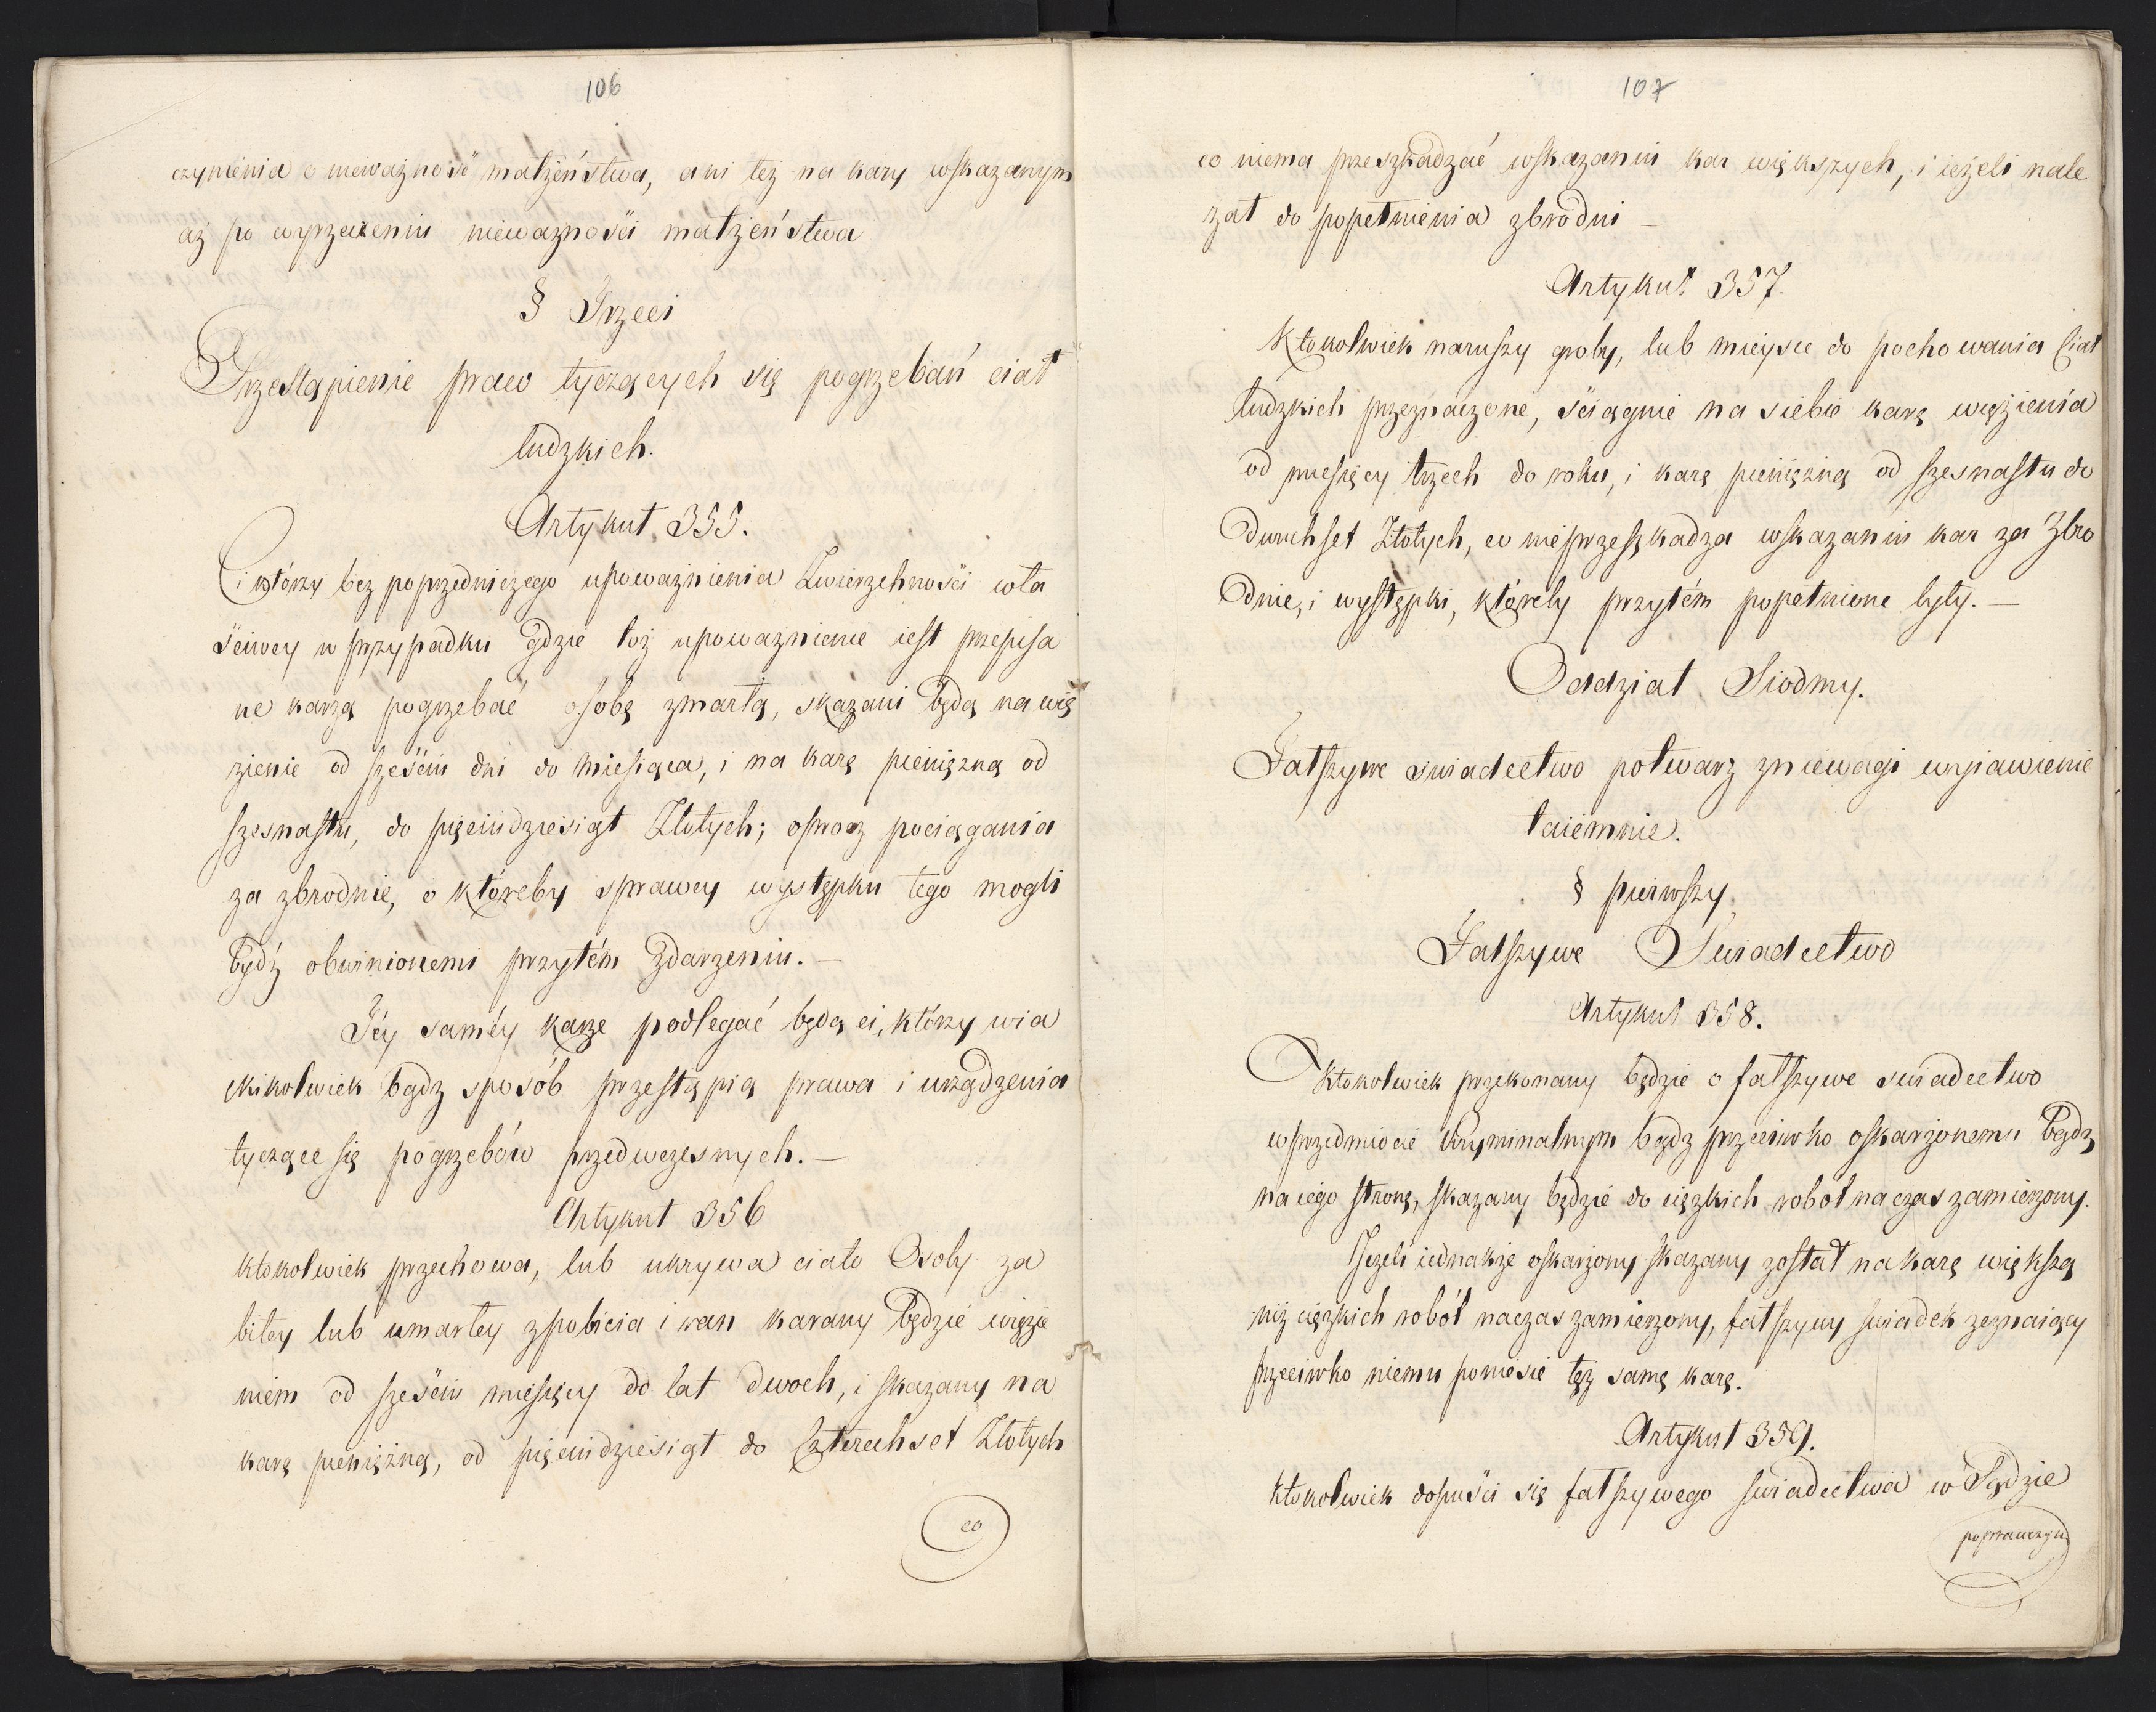 106
czynienia o nieważność małżeństwa, ani też na kary wskazanym
aż po wyrzeczeniu nieważności małżeństwa
§ Trzeci
Przestąpienie praw tyczących się pogrzebań ciał
ludzkich.
Artykuł 355.
Ci którzy bez poprzedniczego upoważnienia Zwierzchności wła
ściwey w przypadku gdzie toż upoważnienie iest przepisa
ne każą pogrzebać osobę zmarłą, skazani będą na wię
zienie od sześciu dni do miesiąca, i na karę pieniężną od
szesnastu, do pięciudziesiąt Złotych; oprocz pociągania
za zbrodnie, o któreby sprawcy występku tego mogli
bydź obwinionemi przytém zdarzeniu. —
Téy saméy karze podlegać będą ci, którzy wia
kikolwiek bądz sposób przestąpią prawa i urządzenia
tyczące się pogrzebów przedwczesnych. —
Artykuł 356
Ktokolwiek przechowa, lub ukrywa ciało Osoby za
bitey lub umarłey zpobicia i ran karany będzie więzie
niem od sześciu miesięcy do lat dwoch, i skazany na
karę pieniężną, od pięciudziesiąt do Czterechset Złotych
co
107
co niema przeszkadzać wskazaniu kar większych, i ieżeli nale
żał do popełnienia zbrodni —
Artykuł 357.
Ktokolwiek naruszy groby, lub mieysce do pochowania Ciał
ludzkich przeznaczone, ściągnie na siebie karę więzienia
od miesięcy trzech do roku, i karę pieniężną od szesnastu do
Dwuchset Złotych, co nieprzeszkadza wskazaniu kar za Zbro
dnie, i występki, któreby przytém popełnione były. —
Oddział Siodmy.
Fałszywe swiadectwo potwarz zniewagi wyiawienie
taiemnic.
§ pierwszy
Fałszywe Swiadectwo
Artykuł 358.
Ktokolwiek przekonany będzie o fałszywe swiadectwo
wprzedmiocie kryminalnym bądz przeciwko oskarżonemu bądz
na iego stronę, skazany będzie do ciężkich robot na czas zamierzony.
Jeżeli iednakże oskarżony skazany został na karę większą
niż ciężkich robót naczas zamierzony, fałszywy swiadek zeznaiący
przeciwko niemu poniesie tęż samę karę.
Artykuł 359.
Ktokolwiek dopuści się fałszywego swiadectwa w Sądzie
poprawczym